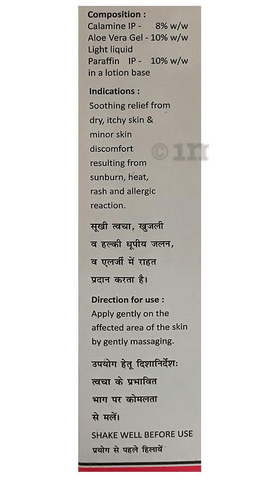 Composition :
Calamine IP - 8% w/w
Aloe Vera Gel - 10% w/w
Light liquid
Paraffin IP - 10% w/w
in a lotion base
Indications :
Soothing relief from
dry, itchy skin &
minor skin
discomfort
resulting from
sunburn, heat,
rash and allergic
reaction.
सूखी त्वचा, खुजली
व हल्की धूपीय जलन,
व एलर्जी में राहत
प्रदान करता है।
Direction for use :
Apply gently on the
affected area of the skin
by gently massaging.
उपयोग हेतू दिशानिर्देशः
त्वचा के प्रभावित
भाग पर कोमलता
से मलें।
SHAKE WELL BEFORE USE
प्रयोग से पहले हिलायें